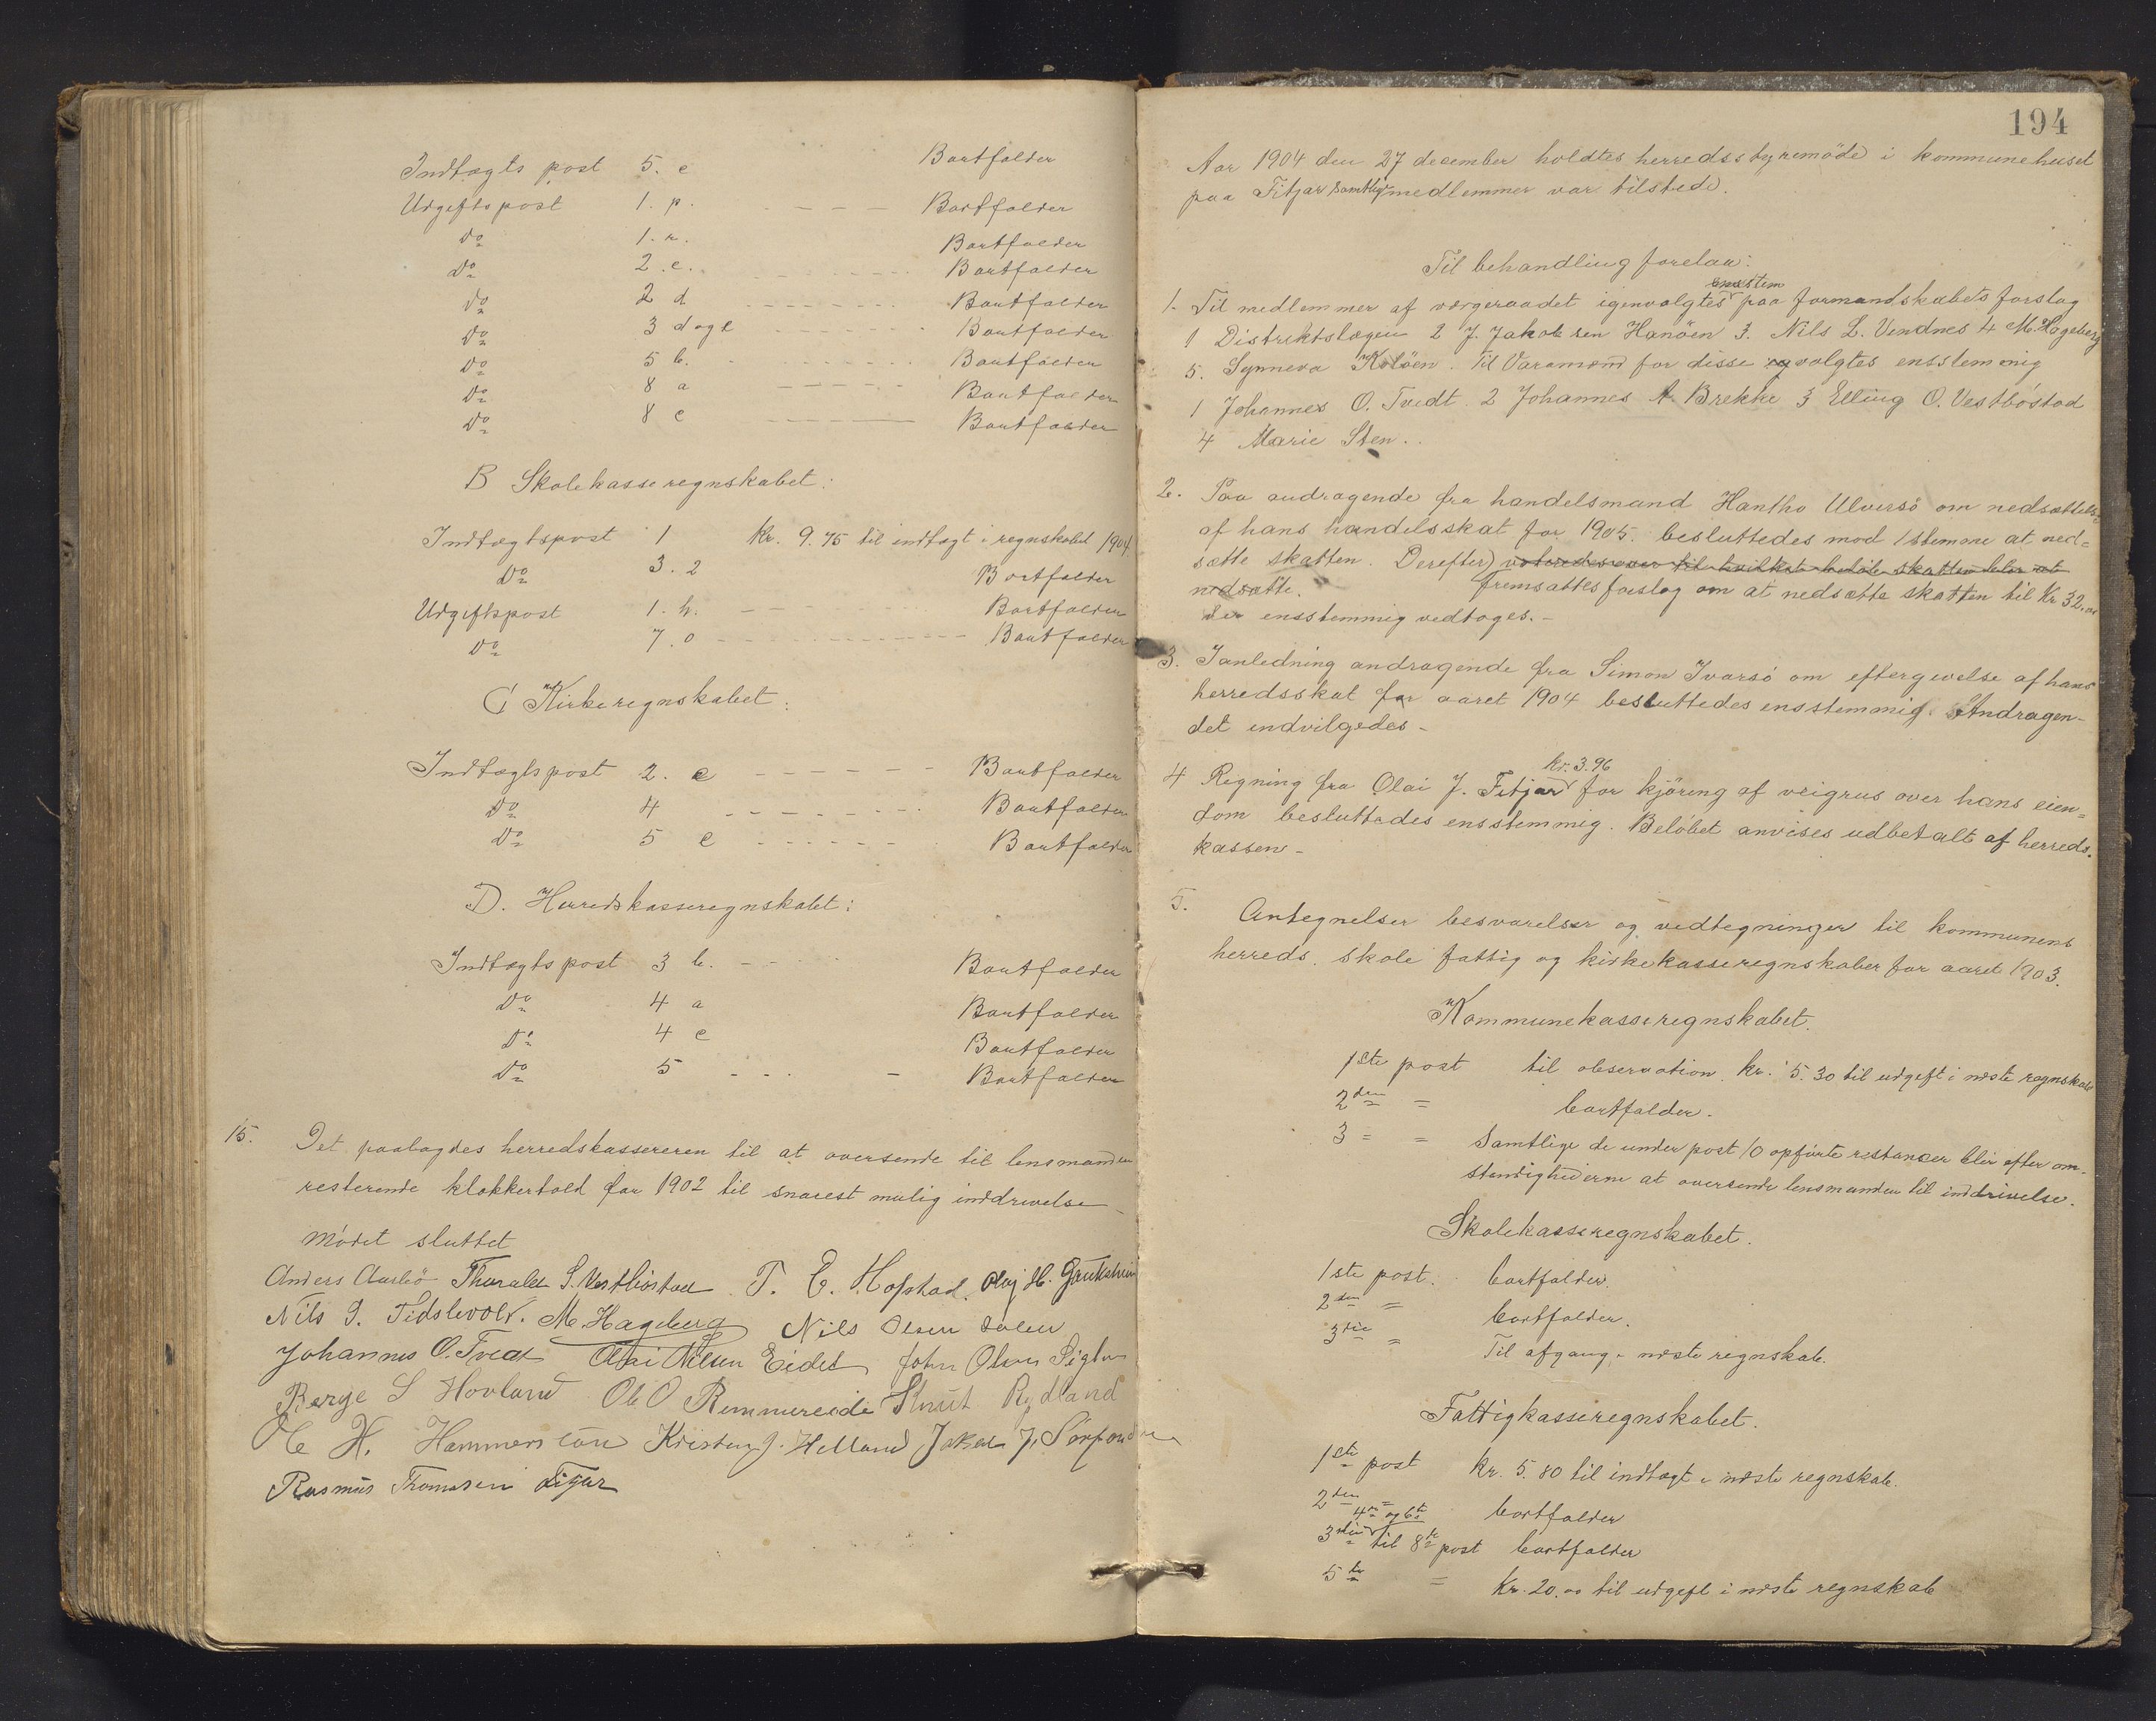 Indtægts post 5. c Bortfalder
Udgiftspost 1. p. - - - Bortfalder
Do 1. r. Bortfalder
Do 2. c. - - - Bortfalder
Do 2 d - - - Bortfalder
Do 3 d og e - - - Bortfalder
Do 5 b. - - - Bortfalder
Do 8 a - - - Bortfalder
Do 8 c - - - Bortfalder
B Skolekasseregnskabet:
Indtægtspost 1 kr. 9.75 til indtægt i regnskabet 1904
Do 3. 2 Bortfalder
Udgiftspost 1. h. - - - Bortfalder
Do 7. o - - - Bortfalder
C Kirkeregnskabet:
Indtægtspost 2. c - - - Bortfalder
Do 4 - - - Bortfalder
Do 5 c - - - Bortfalder
D. Herredskasseregnskabet:
Indtægtspost 3 b. - - Bortfalder
Do 4 a Bortfalder
Do 4 c Bortfalder
Do 5 - - - Bortfalder
15. Det paalagdes herredskassereren til at oversende til lensmanden
resterende klokkertold for 1902 til snarest mulig inddrivelse -
Mødet sluttet
Anders Aarbö Thorald S. Vestböstad T. E. Hofstad. Olaj H. Gaukshein
Nils J. Tidslevold. M. Hageberg Nils Olsen
Johannes O. Tvedt Olai Nilsen Eidet John Olsen
Berge S Hovland Ole O Rimmereide Knut Rydland
Ole H. Kristen J. Helland Jakob J.
Rasmus Thomasen
194
Aar 1904 den 27 december holdtes herredsstyremöde i kommunehuset
paa Fitjar samtlige medlemmer var tilstede.
Til behandling forelaa:
enstem
1. Til medlemmer af værgeraadet igenvalgtes paa formandskabets forslag
1 Distriktslægen 2 J. Jakobsen Hanöen 3. Nils L. Vendnes 4 M. Hageberg
5. Synneva Koløen. Til Varamænd for disse og valgtes ensstemmig
1 Johannes O. Tvedt. 2 Johannes A. Brekke 3 Elling O. Vestböstad
4 Marie Sten.
2. Paa andragende fra handelsmand Hantho Ulversö om nedsættelse
af hans handelsskat for 1905. besluttedes mod 1 stemme at ned=
sætte skatten. Derefter voteredes over til hvilket beløb skatten blir at
nedsætte. fremsattes forslag om at nedsætte skatten til Kr 32.00
der ensstemmig vedtoges. -
3. I anledning andragende fra Simon Ivarsö om eftergivelse af hans
herredsskat for aaret 1904 besluttedes ensstemmig. Andragen-
det indvilgedes -
kr. 3.96
4 Regning fra Olai J. Fitjar for kjöring af veigrus over hans eien=
dom besluttedes ensstemmig. Beløbet anvises udbetalt af herreds.
kassen -
5. Antegnelser besvarelser og vedtegninger til kommunens
herreds. skole fattig og kirkekasseregnskaber for aaret 1903.
Kommunekasseregnskabet.
1ste post til observation. Kr. 5.30 til udgift i næste regnskab
2den = bortfalder.
3 = = Samtlige de under post 10 opførte restancer blir efter om-
stændighederne at oversende lensmanden til inddrivelse.
Skolekasseregnskabet.
1ste post. bortfalder.
2den = bortfalder.
3die = Til afgang i næste regnskab.
Fattigkasseregnskabet.
1ste post Kr. 5.80 til indtægt i næste regnskab.
2den = bortfalder
4de og 6te
3die til 8de post bortfalder
5te = Kr. 20.00 til udgift i næste regnskab